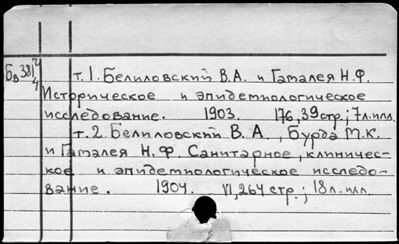 Бв 381 4/4
т.1. Белиловский В.А. и Гамалея Н.Ф.
Историческое и эпидемиологическое
исследование. 1903. 176, 39 стр.; 7 л. илл.
т.2 Белиловский В.А., Бурда М.К.
и Гамалея Н.Ф. Санитарное, клиничес-
кое и эпидемиологическое исследо-
вание. 1904. VI, 264 стр.; 18 л. илл.